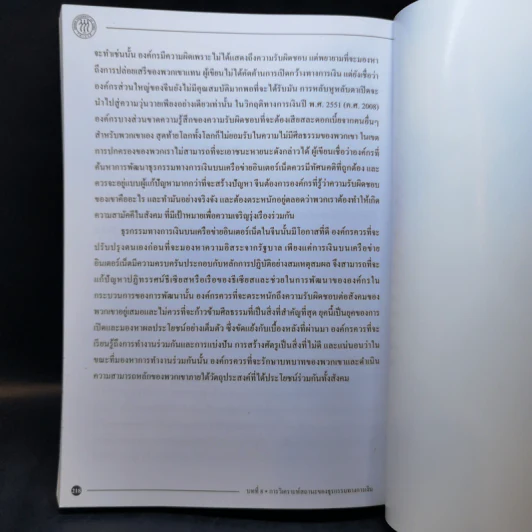 จะทำเช่นนั้น องค์กรมีความผิดเพราะไม่ได้แสดงถึงความรับผิดชอบ แต่พยายามที่จะมองหา
ถึงการปล่อยเสรีของพวกเขาแทน ผู้เขียนไม่ได้คัดค้านการเปิดกว้างทางการเงิน แต่ยังเชื่อว่า
องค์กรส่วนใหญ่ของจีนยังไม่มีคุณสมบัติมากพอที่จะได้รับมัน การหลับหูหลับตาเปิดจะ
นำไปสู่ความวุ่นวายเพียงอย่างเดียวเท่านั้น ในวิกฤติทางการเงินปี พ.ศ. 2551 (ค.ศ. 2008)
องค์กรบางส่วนขาดความรู้สึกของความรับผิดชอบที่จะต้องเสียสละดอกเบี้ยจากคนอื่นๆ
สำหรับพวกเขาเอง สุดท้ายโลกทั้งโลกก็ไม่ยอมรับในความไม่มีศีลธรรมของพวกเขา ในเขต
การปกครองของพวกเราไม่สามารถที่จะเอาชนะหายนะดังกล่าวได้ ผู้เขียนเชื่อว่าองค์กรที่
ค้นหาการพัฒนาธุรกรรมทางการเงินบนเครือข่ายอินเตอร์เน็ตควรมีทัศนคติที่ถูกต้อง และ
ควรจะอยู่แบบผู้แก้ปัญหามากกว่าที่จะสร้างปัญหา จีนต้องการองค์กรที่รู้ว่าความรับผิดชอบ
ของเขาคืออะไร และทำมันอย่างจริงจัง และต้องตระหนักอยู่ตลอดว่าพวกเราต้องทำให้เกิด
ความสามัคคีในสังคม ที่มีเป้าหมายเพื่อความเจริญรุ่งเรืองร่วมกัน
ธุรกรรมทางการเงินบนเครือข่ายอินเตอร์เน็ตในจีนนั้นมีโอกาสที่ดี องค์กรควรที่จะ
ปรับปรุงตนเองก่อนที่จะมองหาความอิสระจากรัฐบาล เพียงแค่การเงินบนเครือข่าย
อินเตอร์เน็ตมีความครบครันประกอบกับหลักการปฏิบัติอย่างสมเหตุสมผล จึงสามารถที่จะ
แก้ปัญหาปฏิทรรศน์ธีเซียสหรือเรือของธีเซียสและช่วยในการพัฒนาขององค์กรใน
กระบวนการของการพัฒนานั้น องค์กรควรที่จะตระหนักถึงความรับผิดชอบต่อสังคมของ
พวกเขาอยู่เสมอและไม่ควรที่จะก้าวข้ามศีลธรรมที่เป็นสิ่งที่สำคัญที่สุด ยุคนี้เป็นยุคของการ
เปิดและมองหาผลประโยชน์อย่างเต็มตัว ซึ่งขัดแย้งกับเบื้องหลังที่ผ่านมา องค์กรควรที่จะ
เรียนรู้ถึงการทำงานร่วมกันและการแบ่งปัน การสร้างศัตรูเป็นสิ่งที่ไม่ดี และแน่นอนว่าใน
ขณะที่มองหาการทำงานร่วมกันนั้น องค์กรควรที่จะรักษาบทบาทของพวกเขาและดำเนิน
ความสามารถหลักของพวกเขาภายใต้วัตถุประสงค์ที่ได้ประโยชน์ร่วมกันทั้งสังคม
บทที่ 8 • การวิเคราะห์สถานะของธุรกรรมทางการเงิน